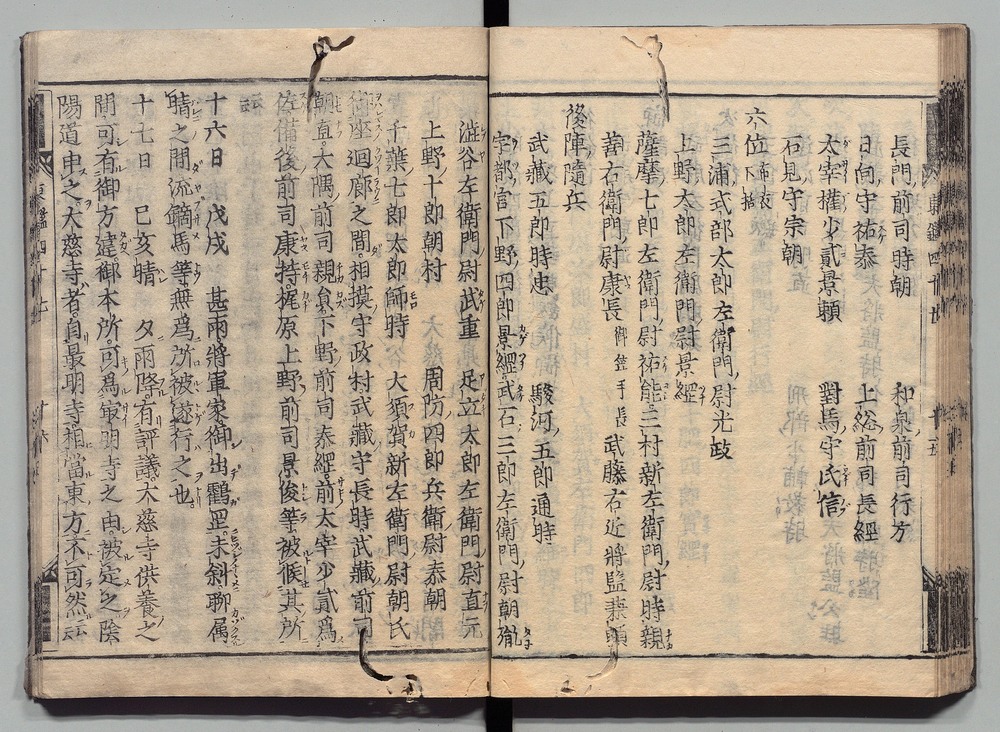 長門前司時朝 和泉前司行方
日向守祐泰 上総前司長經
太宰權少貳景頼 對馬守氏信
石見守宗朝
六位布衣下括
三浦式部太郎左衛門尉光政
上野太郎左衛門尉景經
薩摩七郎左衛門尉祐能三村新左衛門尉時親
韋右衛門尉康長御笠手長武藤右近將監兼頼
後陣隨兵
武藏五郎時忠 駿河五郎通時
宇都宮下野四郎景經武石三郎左衛門尉朝胤
澁谷左衛門尉武重 足立太郎左衛門尉直元
上野十郎朝村 周防四郎兵衛尉泰朝
千葉七郎太郎師時 大須賀新左衛門尉朝氏
御座廻廊之間相摸守政村武藏守長時武藏前司
朝直大隅前司親員下野前司泰經前太宰少貳爲
佐備後前司康持梶原上野前司景俊等被候其所
云云
十六日 戊戌 甚雨將軍家御出鸖罡未斜聊属
晴之間流鏑馬等無爲所被遂行之也
十七日 己亥晴 夕雨降有評議大慈寺供養之
間可有御方違御本所可爲最明寺之由被定之陰
陽道申之大慈寺者自最明寺相當東方不可然云云
東鑑四十七
十六